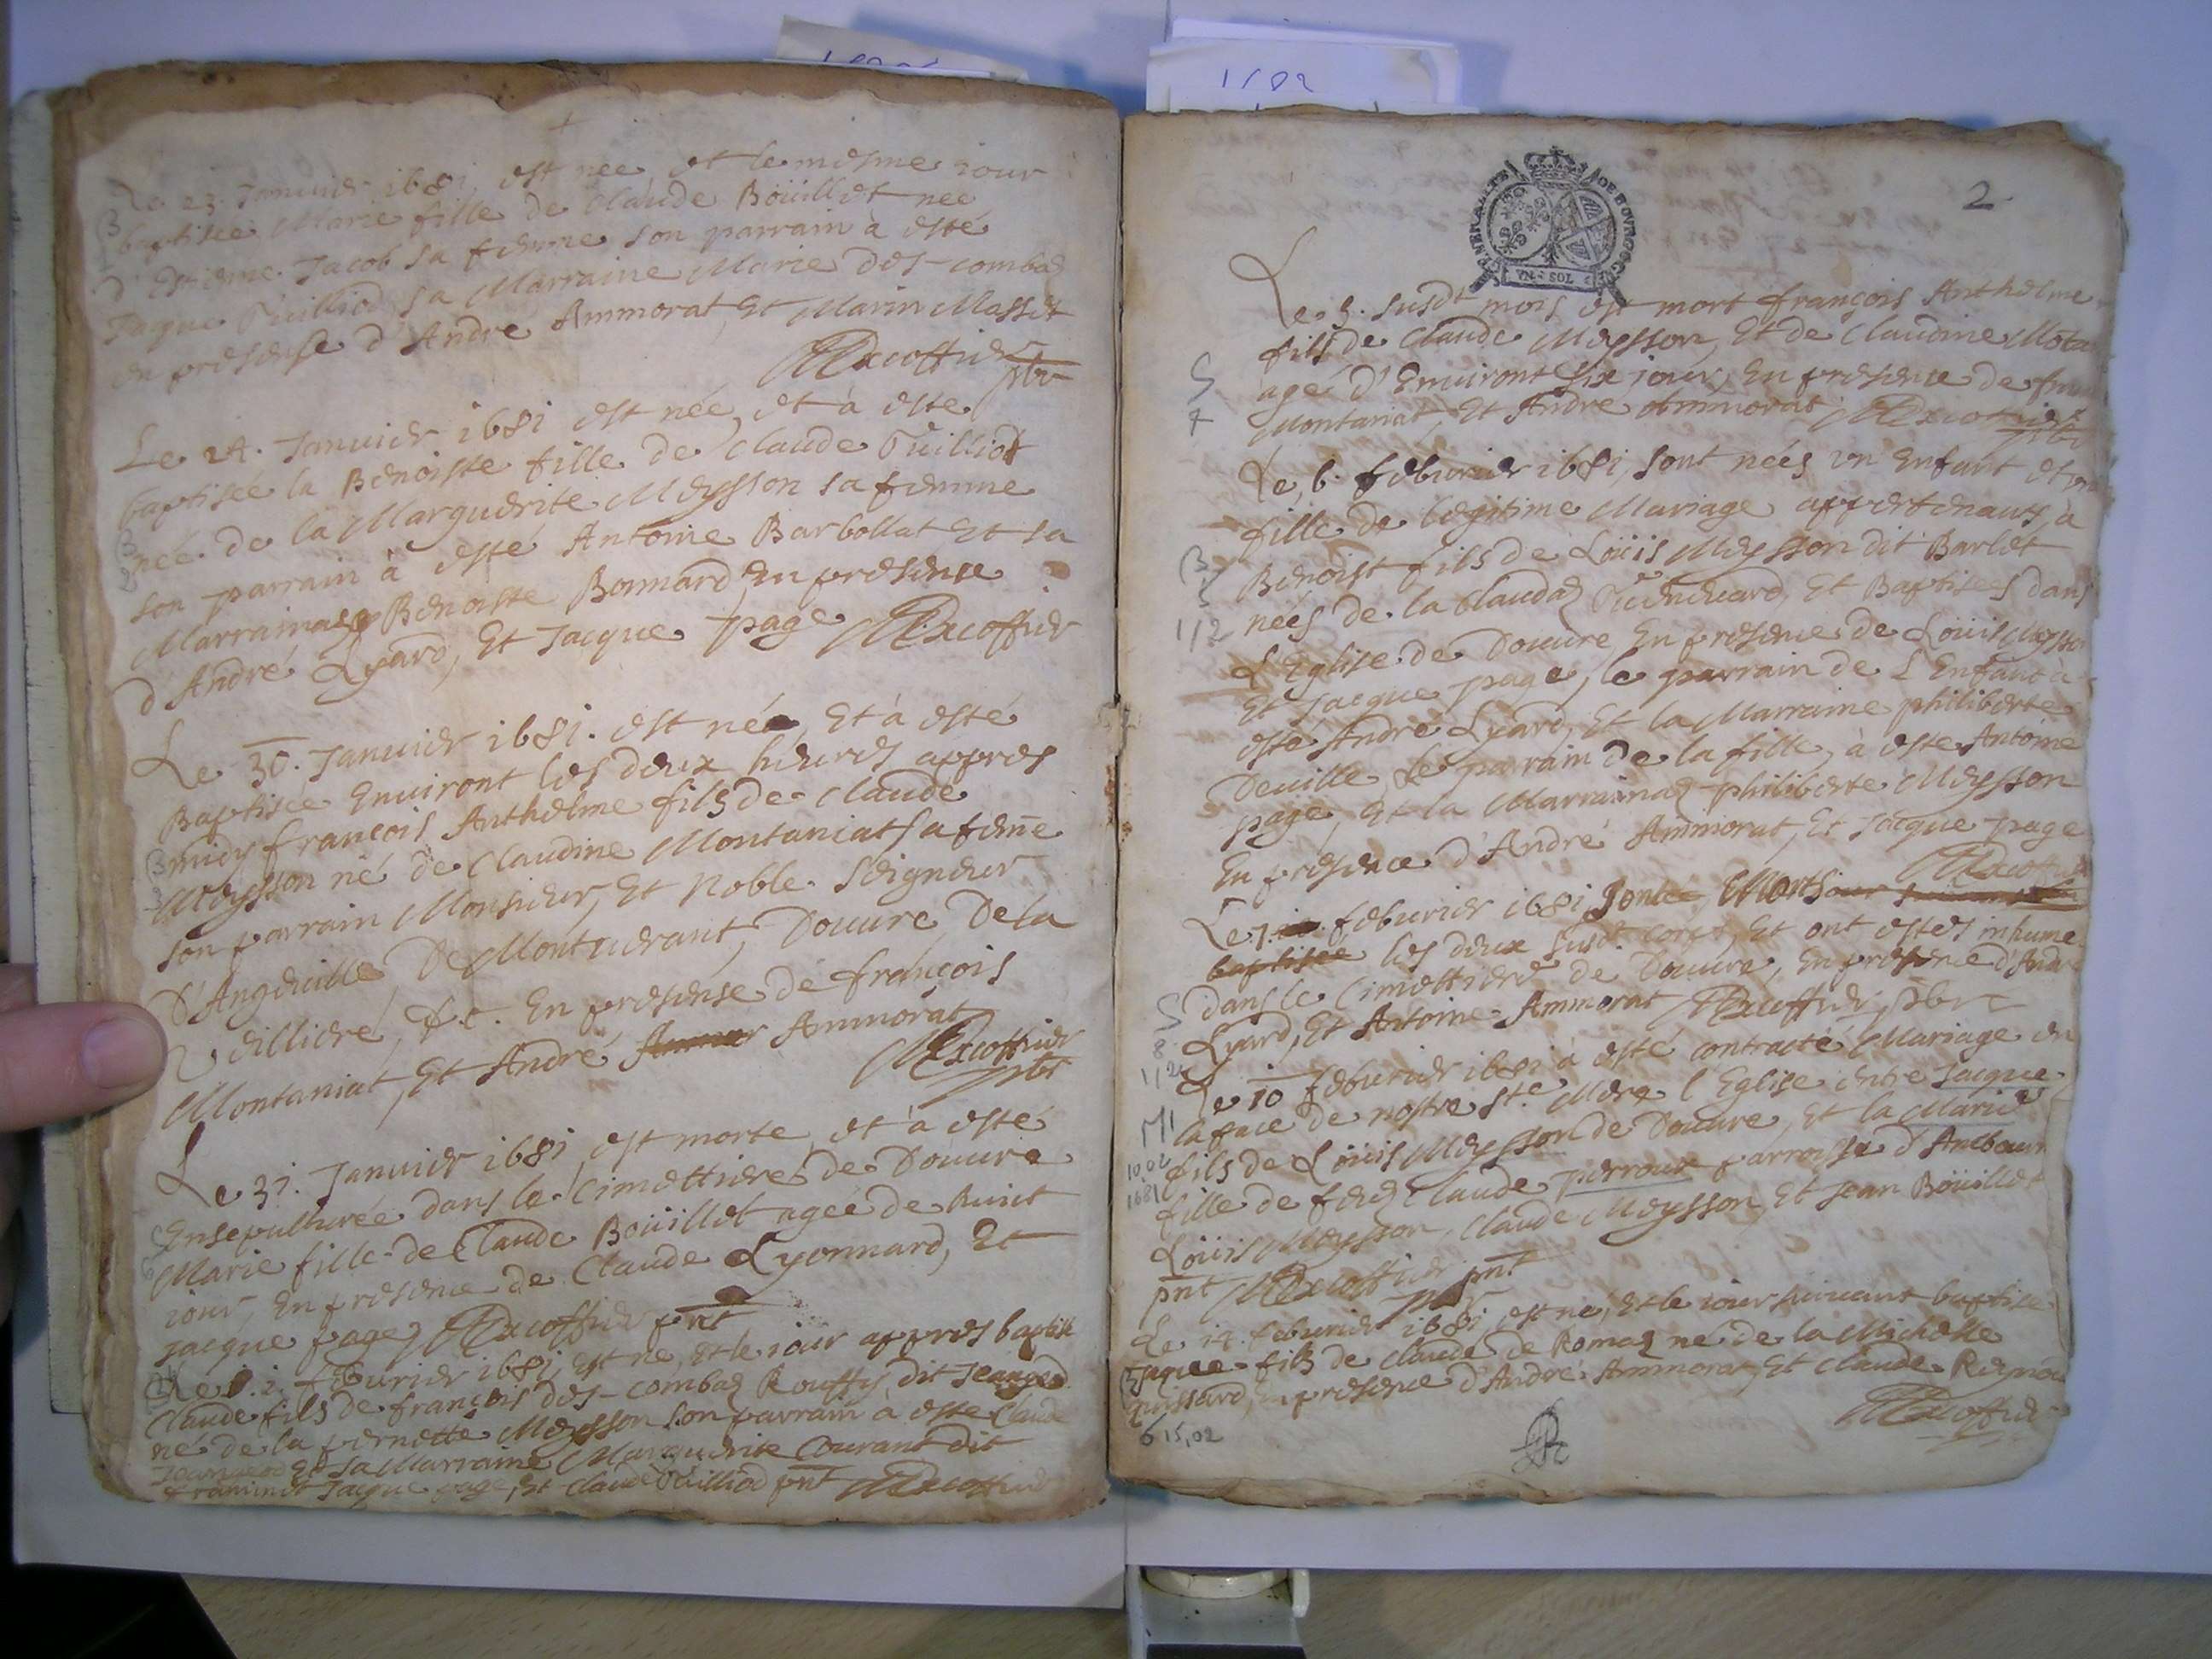 Le 23. Januier 1681 est nee et le mesme iour
baptisée Marie fille de Claude Boüillet nee
d'Estienne Jacob sa femme son parrain à esté
Jaque Vuilliod sa Marraine Marie des-combaz
en presense d'André Ammorat, Et Marin Masset
Excoffier pbr
Le 24. Januier 1681 est née, et à este
baptisée la Benoiste fille de Claude Vuilliot
née de la Marguerite Meysson sa femme
son parrain à esté Antoine Barbollat Et sa
Marraine Benoiste Bonnard, en presense
d'André Lyard, Et Jacque page Excoffier
Le 30. Januier 1681. est née, Et à esté
Baptisée Enuiront les deux heures appres
midy françois Anthelme fils de Claude
Meysson né de Claudine Montaniat sa fem̄e
son parrain Monsieur, Et Noble Seigneur
D'Angeuille De Montuerant, Douure, De la
Veilliere, &c. En presense de françois
Montaniat, Et André Ammorat
Excoffier pbr
Le 31. Januier 1681 est morte et à esté
Ensepulturée dans le Cimettiere de Douure
Marie fille de Claude Boüillet agée de huict
iour, En presence de Claude Lyonnard, Et
Jacque page Excoffier pnt
Le 1. feburier 1681 est né, Et le iour appres baptisé
Claude fils de françois des-combaz Rouffy, dit Jeangod
né de la pernette Meysson son parrain a esté Claude
Jeangod Et sa Marraine Marguerite Courant dit
Jacque page, Et Claude Vuilliod pnt Excoffier
1682
GENERALITE DE BOVRGOGNE
VN SOL
2
Le 5. susdt mois est mort françois Anthelme
fils de Claude Meysson, Et de Claudine Mota
agé d'Enuiront six iour, En presence de
Montaniat, Et André Ammorat Excoffier pbr
Le 6. feburier 1681, sont nées vn Enfant et
fille de legitime Mariage appertenants, à
Benoist fils de Loüis Meysson dit Barlet
nées de la Claudaz Vuenuard, Et Baptisees dans
L'Eglise de Douure, En presence de Loüis Meysson
Et Jacque page, le parrain de L'Enfant à
esté André Lyard, Et la Marraine philiberte
Deuille, Le parrain de la fille, à esté Antoine
page, Et la Marraine philiberte Meysson
En presence d'André Ammorat, Et Jacque page
Excoffier
Le feburier 1681 Mort
baptisée les deux susdt corps, Et ont estes inhume
dans le Cimettiere de Douure, En presence d'André
Lyard, Et Antoine Ammorat Excoffier pbre
Le 10 feburier 1681 à esté contracté Mariage en
la face de nostre Ste Mere l'Eglise entre Jacque
fils de Loüis Meysson de Douure, Et la Marie
fille de feu Claude perroux parroisse d'Ambour
Loüis Meysson, Claude Meysson, Et Jean Boüillet
pnt Excoffier pnt
Le 14. feburier 1681 est né, Et le iour suiuant baptisé
Jaque fils de Claude de Romaz né de la Michelle
quissard, En presence d'André Ammorat, Et Claude
Excoffier
6 15,02